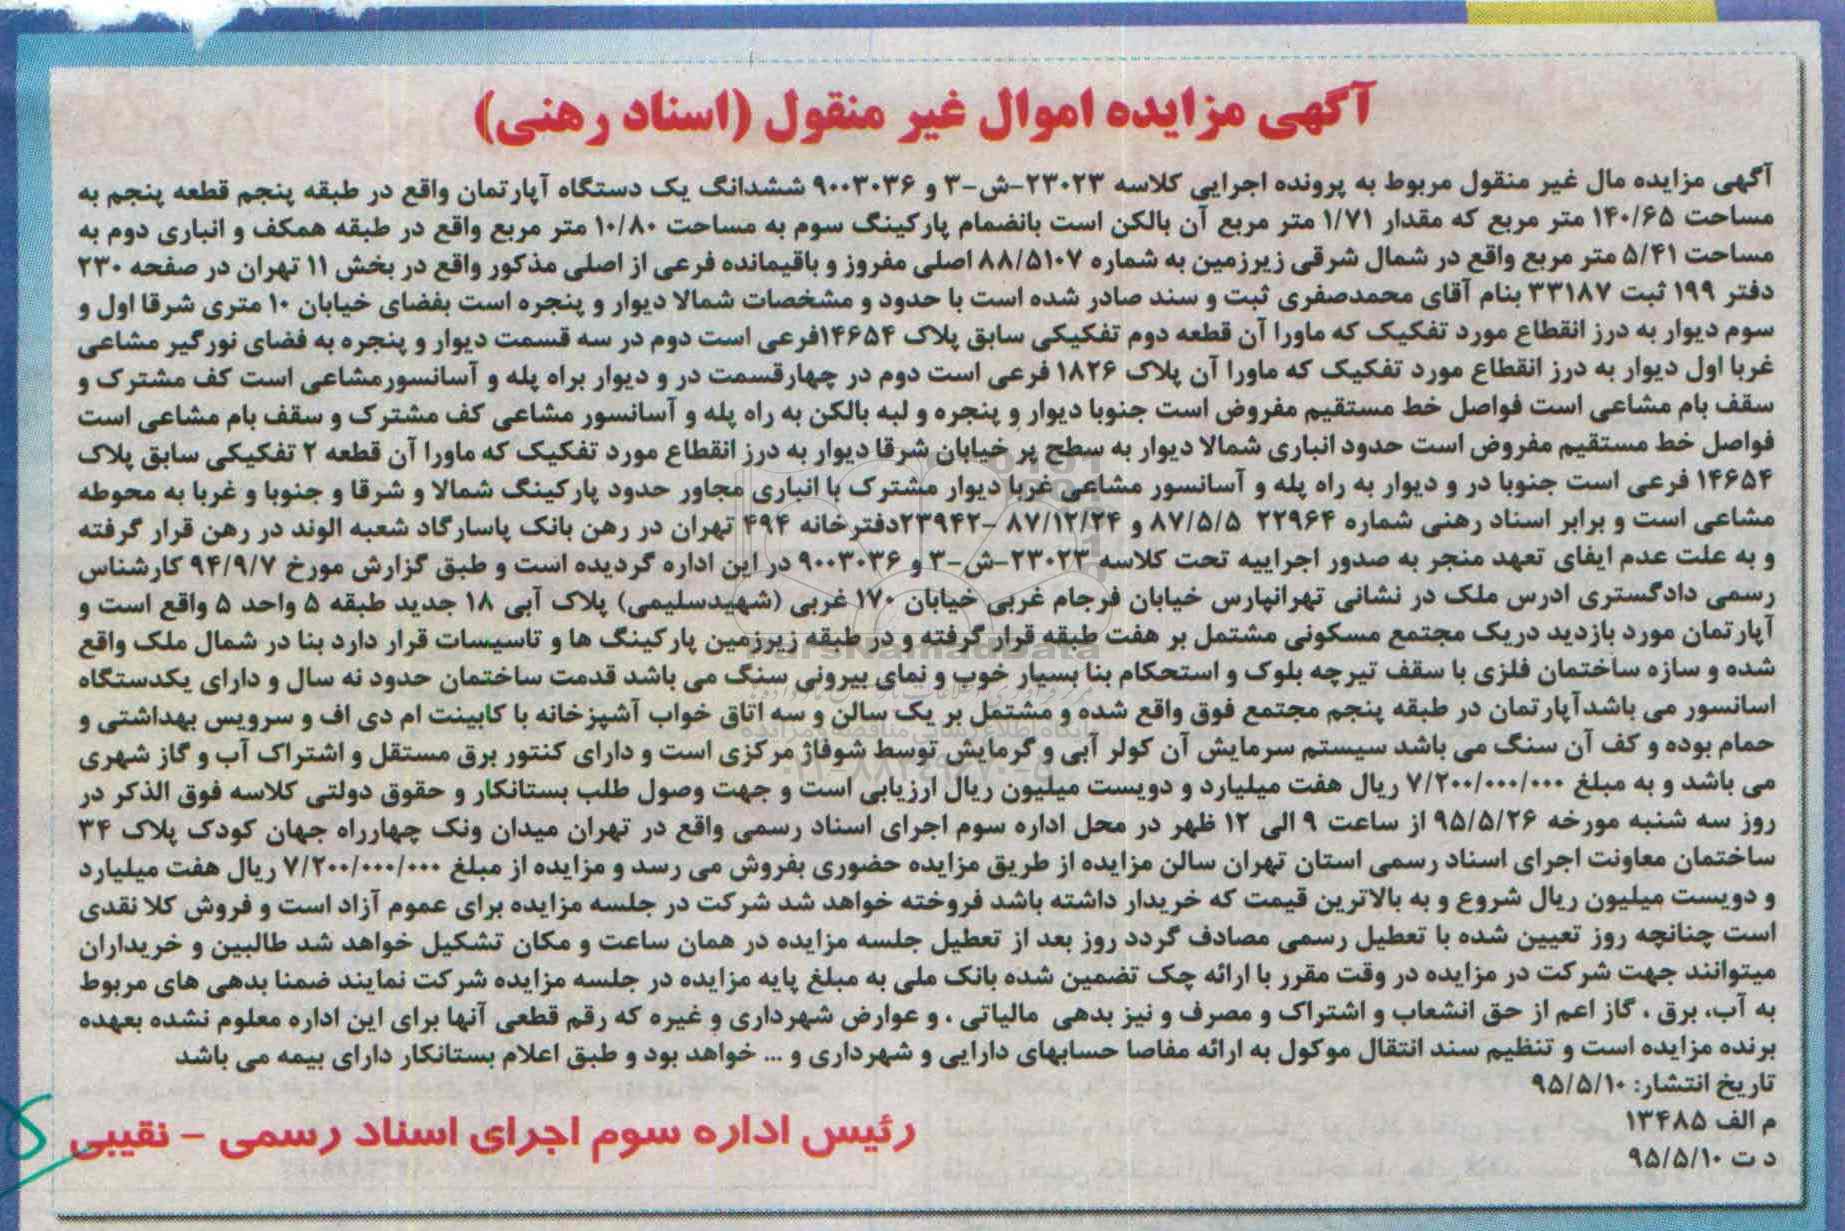 آگهی مزایده اموال غیر منقول (اسناد رهنی)
آگهی مزایده مال غیر منقول مربوط به پرونده اجرایی کلاسه ۲۳۰۲۳-ش-۳ و ۹۰۰۳۰۳۶ ششدانگ یک دستگاه آپارتمان واقع در طبقه پنجم قطعه پنجم به
مساحت ۱۴۰/۶۵ متر مربع که مقدار ۱/۷۱ متر مربع آن بالکن است بانضمام پارکینگ سوم به مساحت ۱۰/۸۰ متر مربع واقع در طبقه همکف و انباری دوم به
مساحت ۵/۴۱ متر مربع واقع در شمال شرقی زیرزمین به شماره ۸۸/۵۱۰۷ اصلی مفروز و باقیمانده فرعی از اصلی مذکور واقع در بخش ۱۱ تهران در صفحه ۲۳۰
دفتر ۱۹۹ ثبت ۳۳۱۸۷ بنام آقای محمدصفری ثبت و سند صادر شده است با حدود و مشخصات شمالا دیوار و پنجره است بفضای خیابان ۱۰ متری شرقا اول و
سوم دیوار به درز انقطاع مورد تفکیک که ماورا آن قطعه دوم تفکیکی سابق پلاک ۱۴۶۵۴فرعی است دوم در سه قسمت دیوار و پنجره به فضای نورگیر مشاعی
غربا اول دیوار به درز انقطاع مورد تفکیک که ماورا آن پلاک ۱۸۲۶ فرعی است دوم در چهارقسمت در و دیوار براه پله و آسانسورمشاعی است کف مشترک و
سقف بام مشاعی است فواصل خط مستقیم مفروض است جنوبا دیوار و پنجره و لبه بالکن به راه پله و آسانسور مشاعی کف مشترک و سقف بام مشاعی است
فواصل خط مستقیم مفروض است حدود انباری شمالا دیوار به سطح پر خیابان شرقا دیوار به درز انقطاع مورد تفکیک که ماورا آن قطعه ۲ تفکیکی سابق پلاک
۱۴۶۵۴ فرعی است جنوبا در و دیوار به راه پله و آسانسور مشاعی غربا دیوار مشترک با انباری مجاور حدود پارکینگ شمالا و شرقا و جنوبا و غربا به محوطه
مشاعی است و برابر اسناد رهنی شماره ۲۲۹۶۴ ۸۷/۵/۵ و ۸۷/۱۲/۲۴ -۲۳۹۴۲دفترخانه ۴۹۴ تهران در رهن بانک پاسارگاد شعبه الوند در رهن قرار گرفته
و به علت عدم ایفای تعهد منجر به صدور اجراییه تحت کلاسه ۲۳۰۲۳-ش-۳ و ۹۰۰۳۰۳۶ در این اداره گردیده است و طبق گزارش مورخ ۹۴/۹/۷ کارشناس
رسمی دادگستری ادرس ملک در نشانی تهرانپارس خیابان فرجام غربی خیابان ۱۷۰ غربی (شهیدسلیمی) پلاک آبی ۱۸ جدید طبقه ۵ واحد ۵ واقع است و
آپارتمان مورد بازدید دریک مجتمع مسکونی مشتمل بر هفت طبقه قرار گرفته و در طبقه زیرزمین پارکینگ ها و تاسیسات قرار دارد بنا در شمال ملک واقع
شده و سازه ساختمان فلزی با سقف تیرچه بلوک و استحکام بنا بسیار خوب و نمای بیرونی سنگ می باشد قدمت ساختمان حدود نه سال و دارای یکدستگاه
اسانسور می باشدآپارتمان در طبقه پنجم مجتمع فوق واقع شده و مشتمل بر یک سالن و سه اتاق خواب آشپزخانه با کابینت ام دی اف و سرویس بهداشتی و
حمام بوده و کف آن سنگ می باشد سیستم سرمایش آن کولر آبی و گرمایش توسط شوفاژ مرکزی است و دارای کنتور برق مستقل و اشتراک آب و گاز شهری
می باشد و به مبلغ ۷/۲۰۰/۰۰۰/۰۰۰ ریال هفت میلیارد و دویست میلیون ریال ارزیابی است و جهت وصول طلب بستانکار و حقوق دولتی کلاسه فوق الذکر در
روز سه شنبه مورخه ۹۵/۵/۲۶ از ساعت ۹ الی ۱۲ ظهر در محل اداره سوم اجرای اسناد رسمی واقع در تهران میدان ونک چهارراه جهان کودک پلاک ۳۴
ساختمان معاونت اجرای اسناد رسمی استان تهران سالن مزایده از طریق مزایده حضوری بفروش می رسد و مزایده از مبلغ ۷/۲۰۰/۰۰۰/۰۰۰ ریال هفت میلیارد
و دویست میلیون ریال شروع و به بالاترین قیمت که خریدار داشته باشد فروخته خواهد شد شرکت در جلسه مزایده برای عموم آزاد است و فروش کلا نقدی
است چنانچه روز تعیین شده با تعطیل رسمی مصادف گردد روز بعد از تعطیل جلسه مزایده در همان ساعت و مکان تشکیل خواهد شد طالبین و خریداران
میتوانند جهت شرکت در مزایده در وقت مقرر با ارائه چک تضمین شده بانک ملی به مبلغ پایه مزایده در جلسه مزایده شرکت نمایند ضمنا بدهی های مربوط
به آب، برق ، گاز اعم از حق انشعاب و اشتراک و مصرف و نیز بدهی مالیاتی ، و عوارض شهرداری و غیره که رقم قطعی آنها برای این اداره معلوم نشده بعهده
برنده مزایده است و تنظیم سند انتقال موکول به ارائه مفاصا حسابهای دارایی و شهرداری و ... خواهد بود و طبق اعلام بستانکار دارای بیمه می باشد
تاریخ انتشار: ۹۵/۵/۱۰
م الف ۱۳۴۸۵
د ت ۹۵/۵/۱۰
رئیس اداره سوم اجرای اسناد رسمی - نقیبی